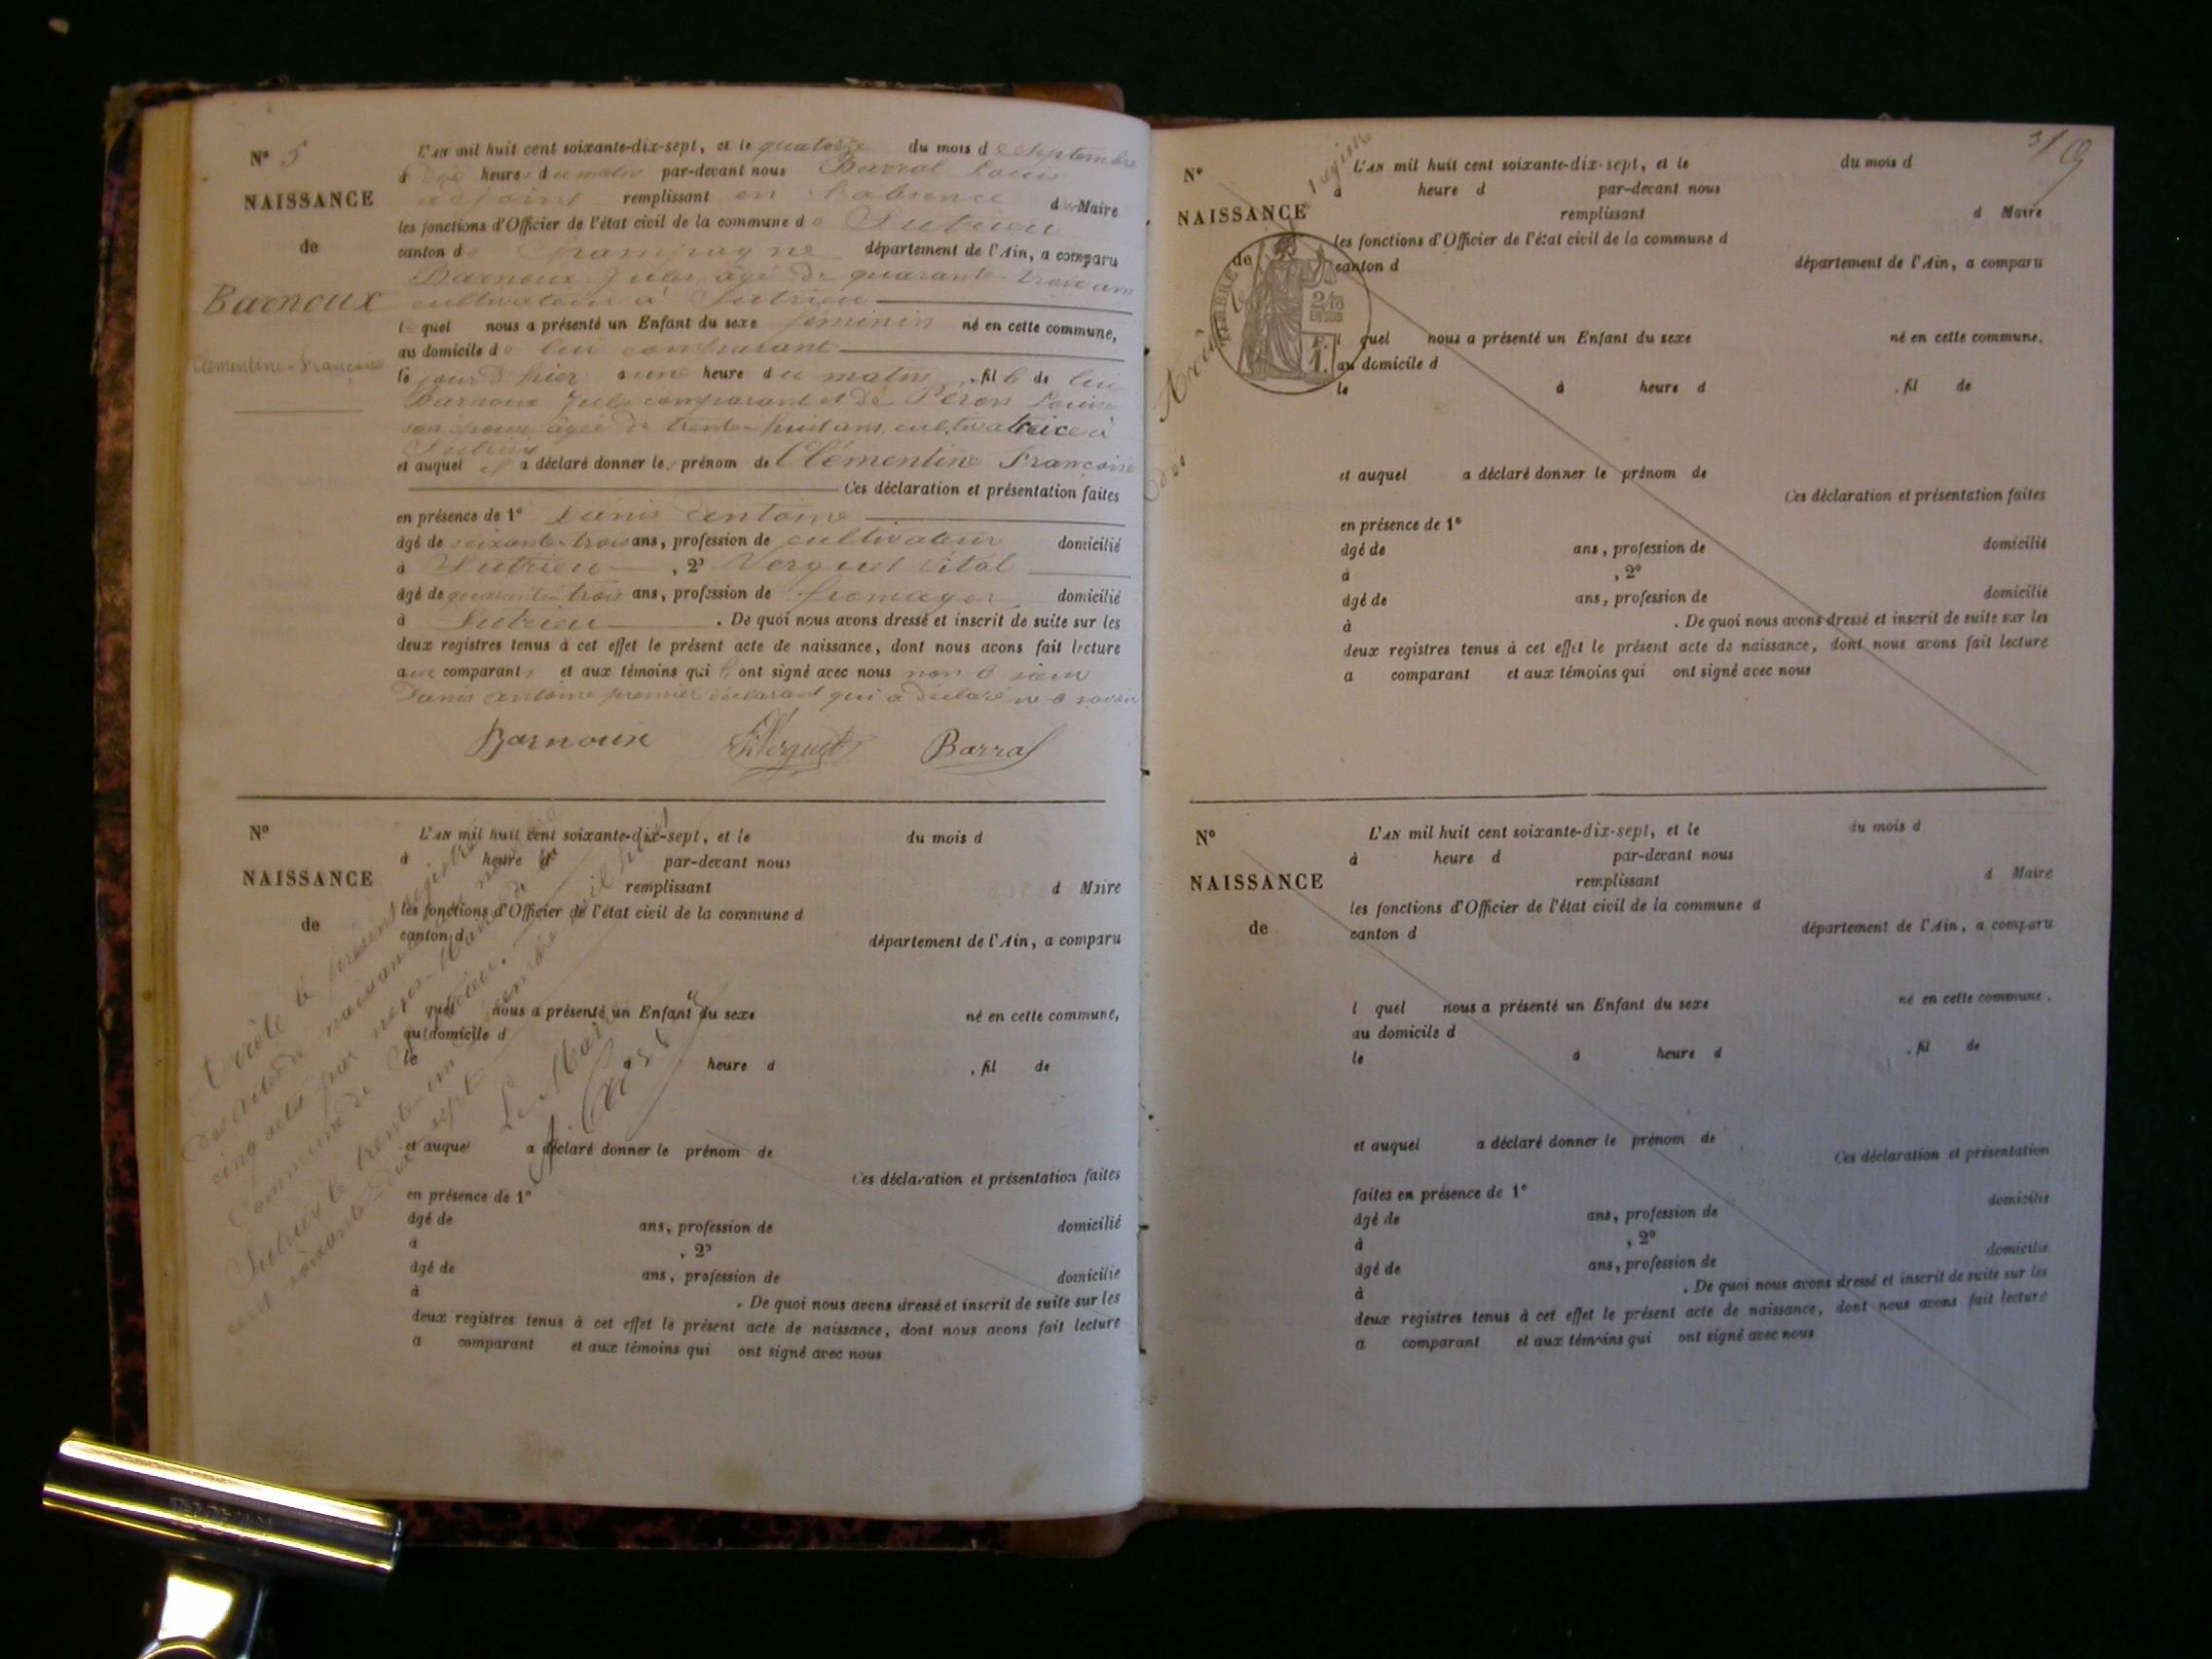 N° 5
NAISSANCE
de
Barnoux
Clémentine-Françoise
L'AN mil huit cent soixante-dix-sept, et le quatorze du mois de Septembre
à dix heures du matin par-devant nous Barral Louis
adjoint remplissant en l'absence du Maire
les fonctions d'Officier de l'état civil de la commune de Sutrieu
canton de Champagne département de l'Ain, a comparu
Barnoux Jules âgé de quarante-trois ans
cultivateur à Sutrieu
lequel nous a présenté un Enfant du sexe féminin né en cette commune,
au domicile de lui comparant
le jour d'hier à une heure du matin, fille de lui
Barnoux Jules comparant et de Peron Louise
son épouse âgée de trente-huit ans, cultivatrice à
Sutrieu
et auquel il a déclaré donner les prénom de Clémentine Françoise
Ces déclaration et présentation faites
en présence de 1° Danis Antoine
âgé de soixante-trois ans, profession de cultivateur domicilié
à Sutrieu, 2° Verguet Vital
âgé de quarante-trois ans, profession de fromager domicilié
à Sutrieu. De quoi nous avons dressé et inscrit de suite sur les
deux registres tenus à cet effet le présent acte de naissance, dont nous avons fait lecture
aux comparants et aux témoins qui l'ont signé avec nous non le sieur
Danis Antoine premier déclarant qui a déclaré ne le savoir
Barnoux Verguet Barral
N°
NAISSANCE
de
L'AN mil huit cent soixante-dix-sept, et le du mois d
à heure d par-devant nous
remplissant d Maire
les fonctions d'Officier de l'état civil de la commune d
canton d département de l'Ain, a comparu
quel nous a présenté un Enfant du sexe né en cette commune,
au domicile d
le à heure d , fil de
et auquel a déclaré donner le prénom de
Ces déclaration et présentation faites
en présence de 1°
âgé de ans, profession de domicilié
à , 2°
âgé de ans, profession de domicilié
à . De quoi nous avons dressé et inscrit de suite sur les
deux registres tenus à cet effet le présent acte de naissance, dont nous avons fait lecture
a comparant et aux témoins qui ont signé avec nous
Arrêté le présent registre
des actes de naissance
cinq actes par nous Maire de la
Commune de Sutrieu.
Sutrieu le trente-un décembre mil huit
cent soixante-dix sept
Le Maire
N°
NAISSANCE
de
L'AN mil huit cent soixante-dix-sept, et le du mois d
à heure d par-devant nous
remplissant d Maire
les fonctions d'Officier de l'état civil de la commune d
canton d département de l'Ain, a comparu
l quel nous a présenté un Enfant du sexe né en cette commune,
au domicile d
le à heure d , fil de
et auquel a déclaré donner le prénom de
Ces déclaration et présentation faites
en présence de 1°
âgé de ans, profession de domicilié
à , 2°
âgé de ans, profession de domicilié
à . De quoi nous avons dressé et inscrit de suite sur les
deux registres tenus à cet effet le présent acte de naissance, dont nous avons fait lecture
a comparant et aux témoins qui ont signé avec nous
TIMBRE
N°
NAISSANCE
de
L'AN mil huit cent soixante-dix-sept, et le du mois d
à heure d par-devant nous
remplissant d Maire
les fonctions d'Officier de l'état civil de la commune d
canton d département de l'Ain, a comparu
l quel nous a présenté un Enfant du sexe né en cette commune,
au domicile d
le à heure d , fil de
et auquel a déclaré donner le prénom de
Ces déclaration et présentation
faites en présence de 1° domicilié
âgé de ans, profession de
à , 2° domicilié
âgé de ans, profession de
à . De quoi nous avons dressé et inscrit de suite sur les
deux registres tenus à cet effet le présent acte de naissance, dont nous avons fait lecture
a comparant et aux témoins qui ont signé avec nous